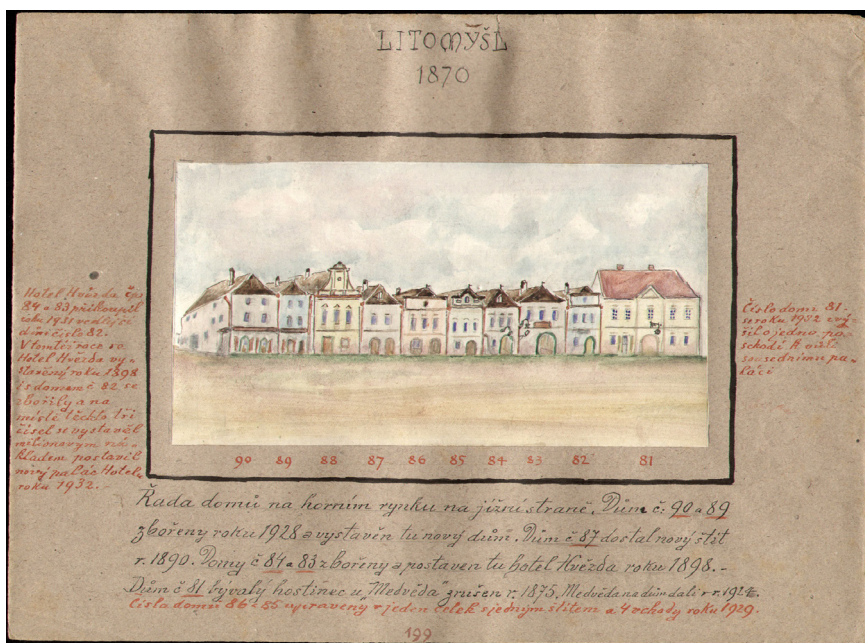 LITOMYŠL
1870
Hotel Hvězda čps
84 a 83 přikoupil
roku 1931 vedlejší
dům číslo 82.
V tomtéž roce sv.
Hotel Hvězda vy-
stavěný roku 1898
i s domem č 82 se
zbořily a na
místě těchto tří
čísel se vystavěl
milionovým ná-
kladem postavil
nový palác Hotel.
roku 1932.-
Číslo domu 81-
se roku 1932 zvý
šilo jedno po-
schodí k
sousednímu pa-
láci
90 89 88 87 86 85 84 83 82 81
Řada domů na horním rynku na jižní straně. Dům č. 90 a 89
zbořeny roku 1928 a vystavěn tu nový dům. Dům č 87 dostal nový štít
r. 1890. Domy č 84 a 83 zbořeny a postaven tu hotel Hvězda roku 1898.-
Dům č 81 bývalý hostinec u „Medvěda" zrušen r. 1875, Medvěda na dům dali r.
Čísla domů 86 a 85 upraveny v jeden celek s jedným štítem a 4 vchody roku 1929.
199